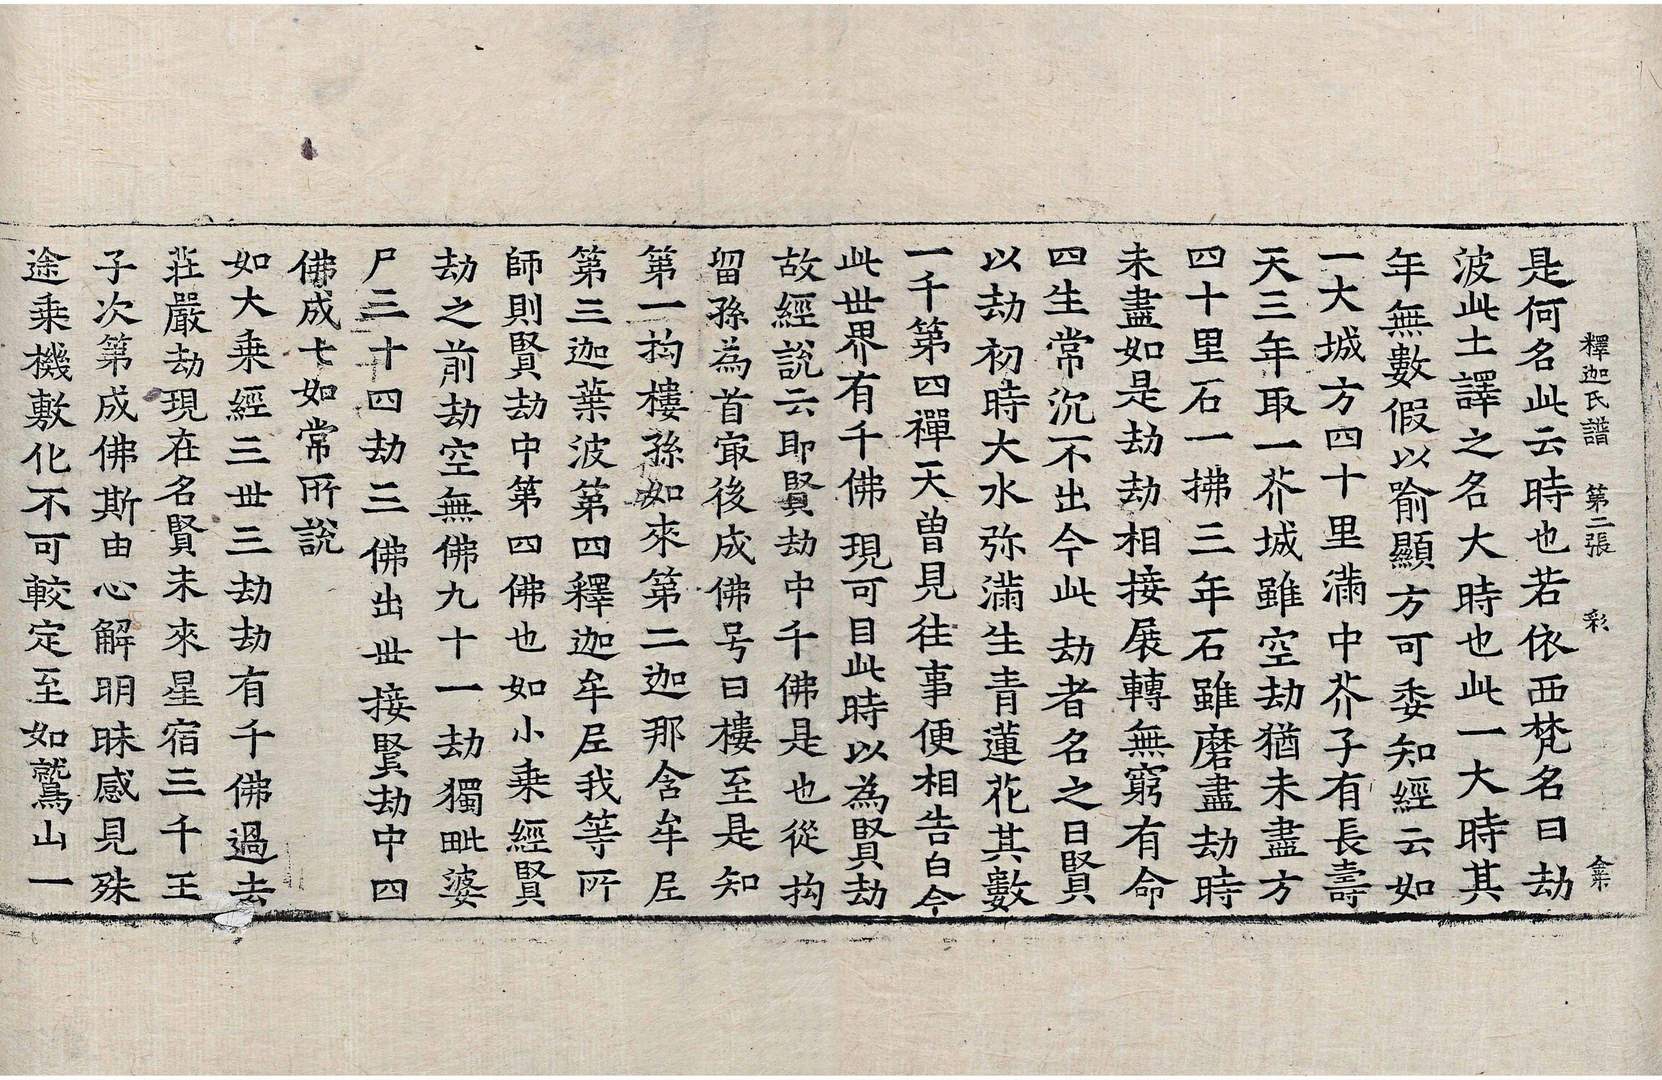 釋迦氏譜 第二張 彩
是何名此云時也若依西梵名曰劫
波此土譯之名大時也此一大時其
年無數假以喻顯方可委知經云如
一大城方四十里滿中芥子有長壽
天三年取一芥城雖空劫猶未盡方
四十里石一拂三年石雖磨盡劫時
未盡如是劫劫相接展轉無窮有命
四生常沉不出今此劫者名之曰賢
以劫初時大水弥滿生青蓮花其數
一千第四禪天曾見往事便相告白今
此世界有千佛現可目此時以為賢劫
故經說云即賢劫中千佛是也從拘
留孫為首㝡後成佛号曰樓至是知
第一拘樓孫如來第二迦那含牟尼
第三迦葉波第四釋迦牟尼我等所
師則賢劫中第四佛也如小乘經賢
劫之前劫空無佛九十一劫獨毗婆
尸三十四劫三佛出世接賢劫中四
佛成七如常所說
如大乘經三世三劫劫有千佛過去
莊嚴劫現在名賢未來星宿三千王
子次第成佛斯由心解明昧感見殊
途乘機敷化不可較定至如鷲山一